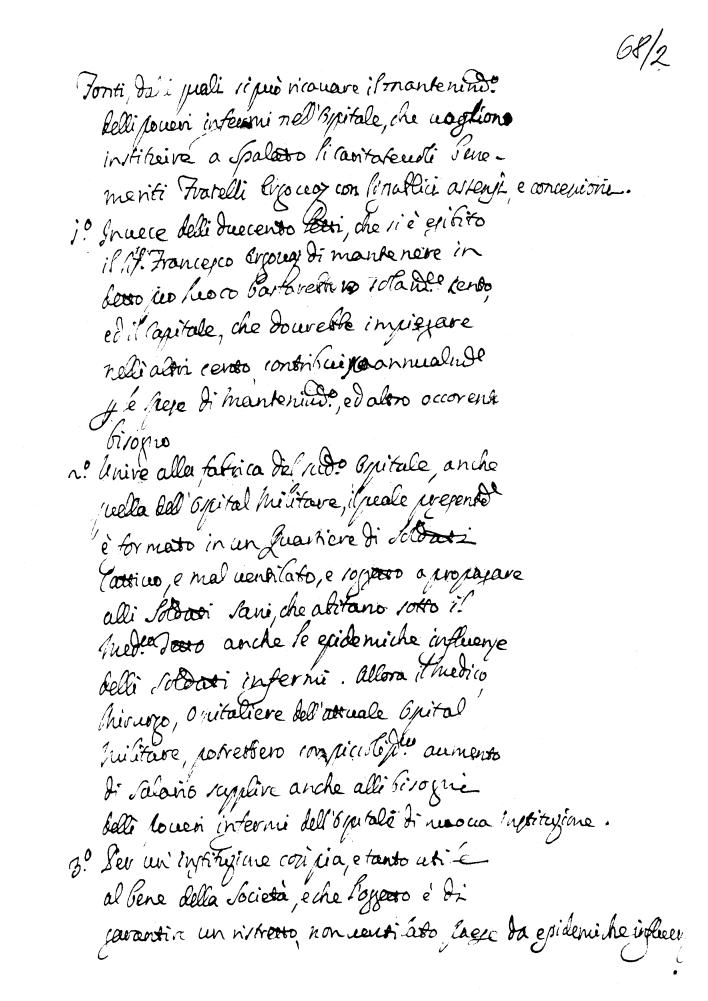 68/2
Fonti, da i quali si può ricavare il mantenim.to
delli poveri infermi nell'Ospitale, che vogliono
instituire a Spalato li caritatevoli bene-
meriti Fratelli Ergovaz con l'implici assensi, e concessioni.
1.o Invece delli duecento letti, che si è esibito
il Sig.r Francesco Ergovaz di mantenere in
detto pio luoco bastarebbero solam.te cento,
ed il Capitale, che dovrebbe impiegare
nelli altri cento contribuire annualm.te
p. le spese di mantenim.to, ed altro occorente
bisogno
2.o Unire alla fabrica del sud.o Ospitale, anche
quella dell'Ospital Militare, il quale presentem.te
è formato in un Quartiere di Soldati
Cattivo, e mal ventilato, e soggetto a propagare
alli Soldati sani, che abitano sotto il
med.mo Tetto anche le epidemiche influenze
delli Soldati infermi. Allora il Medico,
Chirurgo, Ospitaliere dell'attuale Ospital
Militare, potrebbero con piccolis.mo aumento
di Salario supplire anche alli bisogni
delli Poveri infermi dell'Ospitale di nuova instituzione.
3.o Per un' instituzione così pia, e tanto utile
al bene della Società, e che l'oggetto è di
garantire un ristretto, non ventilato Paese da epidemiche influenz